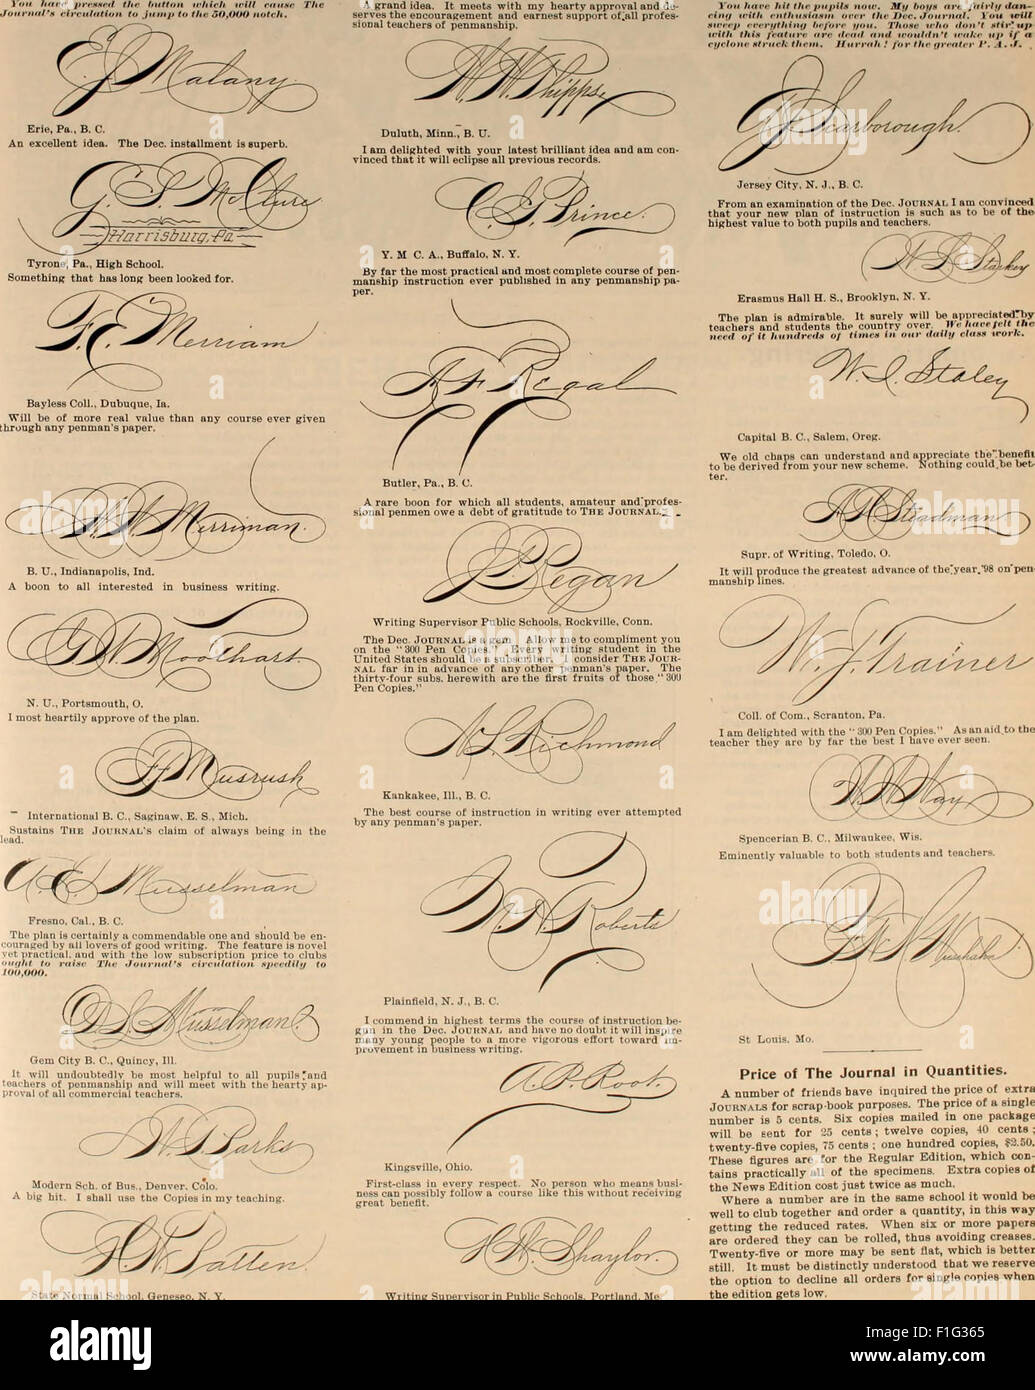 You have pressed the button which will cause The
Journal's circulation to jump to the 50,000 notch.
E. J. Malany
Erie, Pa., B. C.
An excellent idea. The Dec. installment is superb.
G. S. McClure
Harrisburg, Pa
Tyrone, Pa., High School.
Something that has long been looked for.
F. E. Merriam
Bayless Coll., Dubuque, Ia.
Will be of more real value than any course ever given
through any penman's paper.
Merriman.
B. U., Indianapolis, Ind.
A boon to all interested in business writing.
G. W. Moothart.
N. U., Portsmouth, O.
I most heartily approve of the plan.
Musrush
International B. C., Saginaw, E. S., Mich.
Sustains THE JOURNAL'S claim of always being in the
lead.
Musselman
Fresno, Cal., B. C.
The plan is certainly a commendable one and should be en-
couraged by all lovers of good writing. The feature is novel
yet practical, and with the low subscription price to clubs
ought to raise The Journal's circulation speedily to
100,000.
D. L. Musselman.
Gem City B. C., Quincy, Ill.
It will undoubtedly be most helpful to all pupils and
teachers of penmanship and will meet with the hearty ap-
proval of all commercial teachers.
Parks
Modern Sch. of Bus., Denver, Colo.
A big hit. I shall use the Copies in my teaching.
Patten.
State Normal School, Geneseo, N. Y.
A grand idea. It meets with my hearty approval and de-
serves the encouragement and earnest support of all profes-
sional teachers of penmanship.
Phipps.
Duluth, Minn., B. U.
I am delighted with your latest brilliant idea and am con-
vinced that it will eclipse all previous records.
C. E. Prince.
Y. M C. A., Buffalo, N. Y.
By far the most practical and most complete course of pen-
manship instruction ever published in any penmanship pa-
per.
A F Regal
Butler, Pa., B. C.
A rare boon for which all students, amateur and profes-
sional penmen owe a debt of gratitude to THE JOURNAL.
Regan
Writing Supervisor Public Schools, Rockville, Conn.
The Dec. JOURNAL is a gem. Allow me to compliment you
on the "300 Pen Copies." Every writing student in the
United States should be a subscriber. I consider THE JOUR-
NAL far in in advance of any other penman's paper. The
thirty-four subs. herewith are the first fruits of those "300
Pen Copies."
Richmond
Kankakee, Ill., B. C.
The best course of instruction in writing ever attempted
by any penman's paper.
Roberts
Plainfield, N. J., B. C.
I commend in highest terms the course of instruction be-
gun in the Dec. JOURNAL and have no doubt it will inspire
many young people to a more vigorous effort toward im-
provement in business writing.
A. P. Root.
Kingsville, Ohio.
First-class in every respect. No person who means busi-
ness can possibly follow a course like this without receiving
great benefit.
Shaylor.
Writing Supervisor in Public Schools, Portland, Me.
You have hit the pupils now. My boys are fairly dan-
cing with enthusiasm over the Dec. Journal. You will
sweep everything before you. Those who don't stir up
with this feature are dead and wouldn't wake up if a
cyclone struck them. Hurrah! for the greater P. A. J.
Scarborough.
Jersey City, N. J., B. C.
From an examination of the Dec. JOURNAL I am convinced
that your new plan of instruction is such as to be of the
highest value to both pupils and teachers.
Starkey
Erasmus Hall H. S., Brooklyn, N. Y.
The plan is admirable. It surely will be appreciated by
teachers and students the country over. We have felt the
need of it hundreds of times in our daily class work.
W. I. Staley
Capital B. C., Salem, Oreg.
We old chaps can understand and appreciate the benefit
to be derived from your new scheme. Nothing could be bet-
ter.
Steadman
Supr. of Writing, Toledo, O.
It will produce the greatest advance of the year '98 on pen-
manship lines.
W. J. Trainer
Coll. of Com., Scranton, Pa.
I am delighted with the "300 Pen Copies." As an aid to the
teacher they are by far the best I have ever seen.
Way
Spencerian B. C., Milwaukee, Wis.
Eminently valuable to both students and teachers.
St Louis, Mo.
Price of The Journal in Quantities.
A number of friends have inquired the price of extra
JOURNALS for scrap-book purposes. The price of a single
number is 5 cents. Six copies mailed in one package
will be sent for 25 cents; twelve copies, 40 cents;
twenty-five copies, 75 cents; one hundred copies, $2.50.
These figures are for the Regular Edition, which con-
tains practically all of the specimens. Extra copies of
the News Edition cost just twice as much.
Where a number are in the same school it would be
well to club together and order a quantity, in this way
getting the reduced rates. When six or more papers
are ordered they can be rolled, thus avoiding creases.
Twenty-five or more may be sent flat, which is better
still. It must be distinctly understood that we reserve
the option to decline all orders for single copies when
the edition gets low.
alamy
alamy
Image ID: F1G365
www.alamy.com